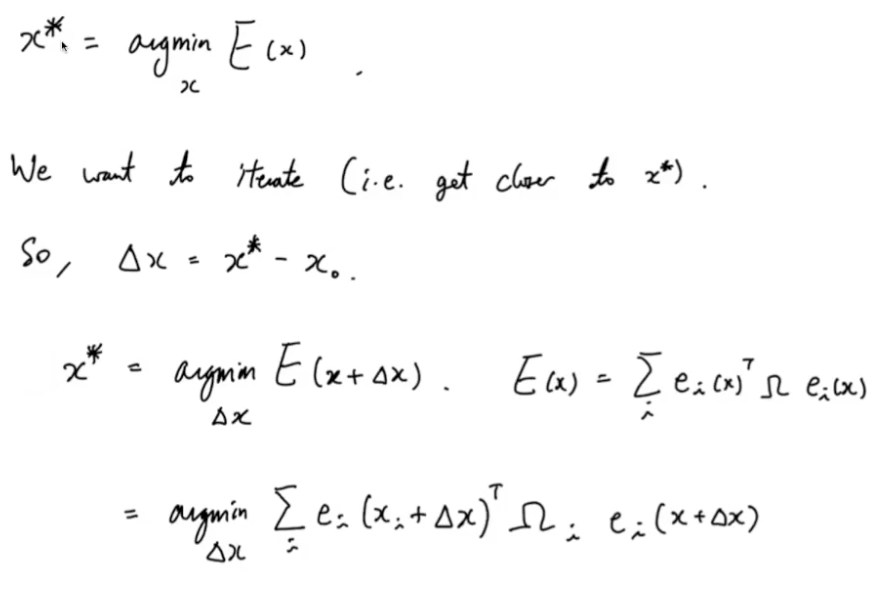 x* = argmin E(x) .
x
We want to iterate (i.e. get closer to x*) .
So, Δx = x* - x₀ .
x* = argmin E(x+Δx) . E(x) = Σ eᵢ(x)ᵀ Ω eᵢ(x)
Δx i
= argmin Σ eᵢ(xᵢ+Δx)ᵀ Ωᵢ eᵢ(x+Δx)
Δx i